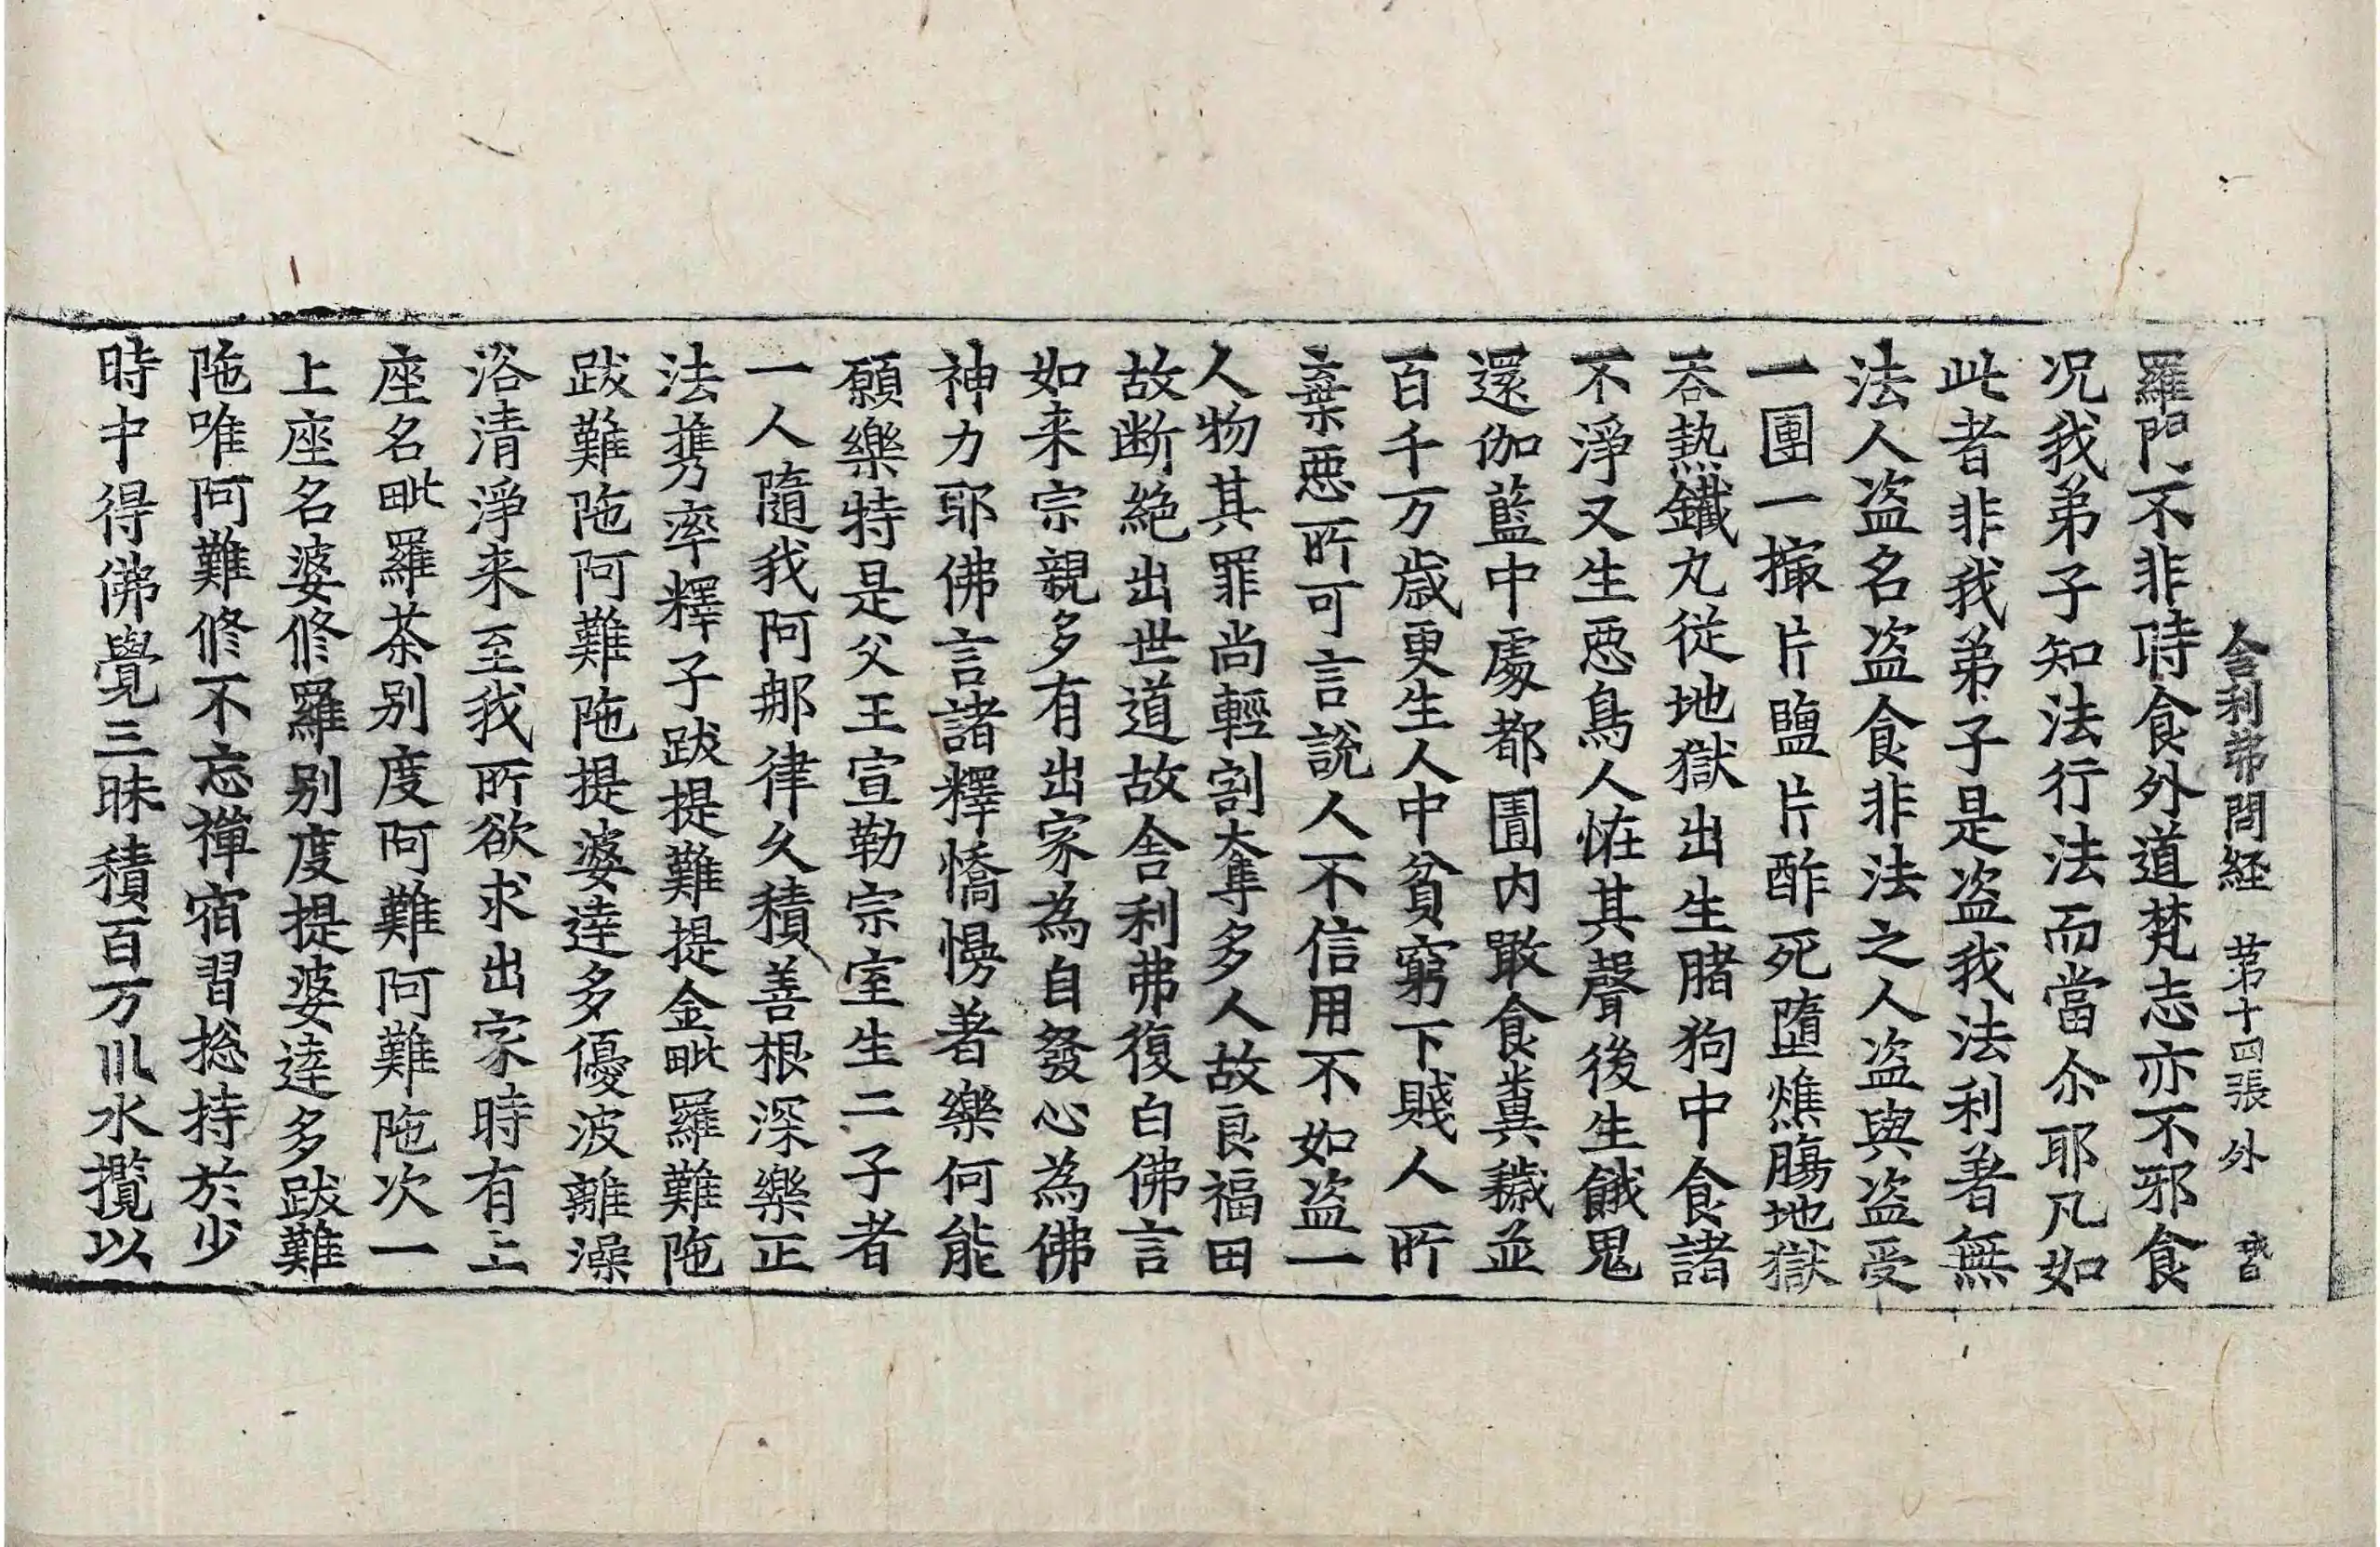 舎利弗問経 苐十四張 外
羅門不非時食外道梵志亦不邪食
况我弟子知法行法而當尒耶凡如
此者非我弟子是盗我法利著無
法人盗名盗食非法之人盗與盗受
一團一撮片鹽片酢死墮燋膓地獄
吞熱鐵丸従地獄出生猪狗中食諸
不淨又生惡鳥人恠其聲後生餓鬼
還伽藍中處都圊内噉食糞穢並
百千万歳更生人中貧窮下賤人所
棄惡所可言説人不信用不如盗一
人物其罪尚輕割奪多人故良福田
故断絶出世道故舎利弗復白佛言
如来宗親多有出家為自發心為佛
神力耶佛言諸釋憍慢著樂何能
願樂特是父王宣勒宗室生二子者
一人隨我阿那律久積善根深樂正
法携率釋子跋提難提金毗羅難陁
跋難陁阿難陁提婆達多優波離澡
浴清淨来至我所欲求出家時有上
座名毗羅茶别度阿難阿難陁次一
上座名婆修羅别度提婆達多跋難
陁唯阿難修不忘禪宿習捴持於少
時中得佛覺三昧積百万川水攬以